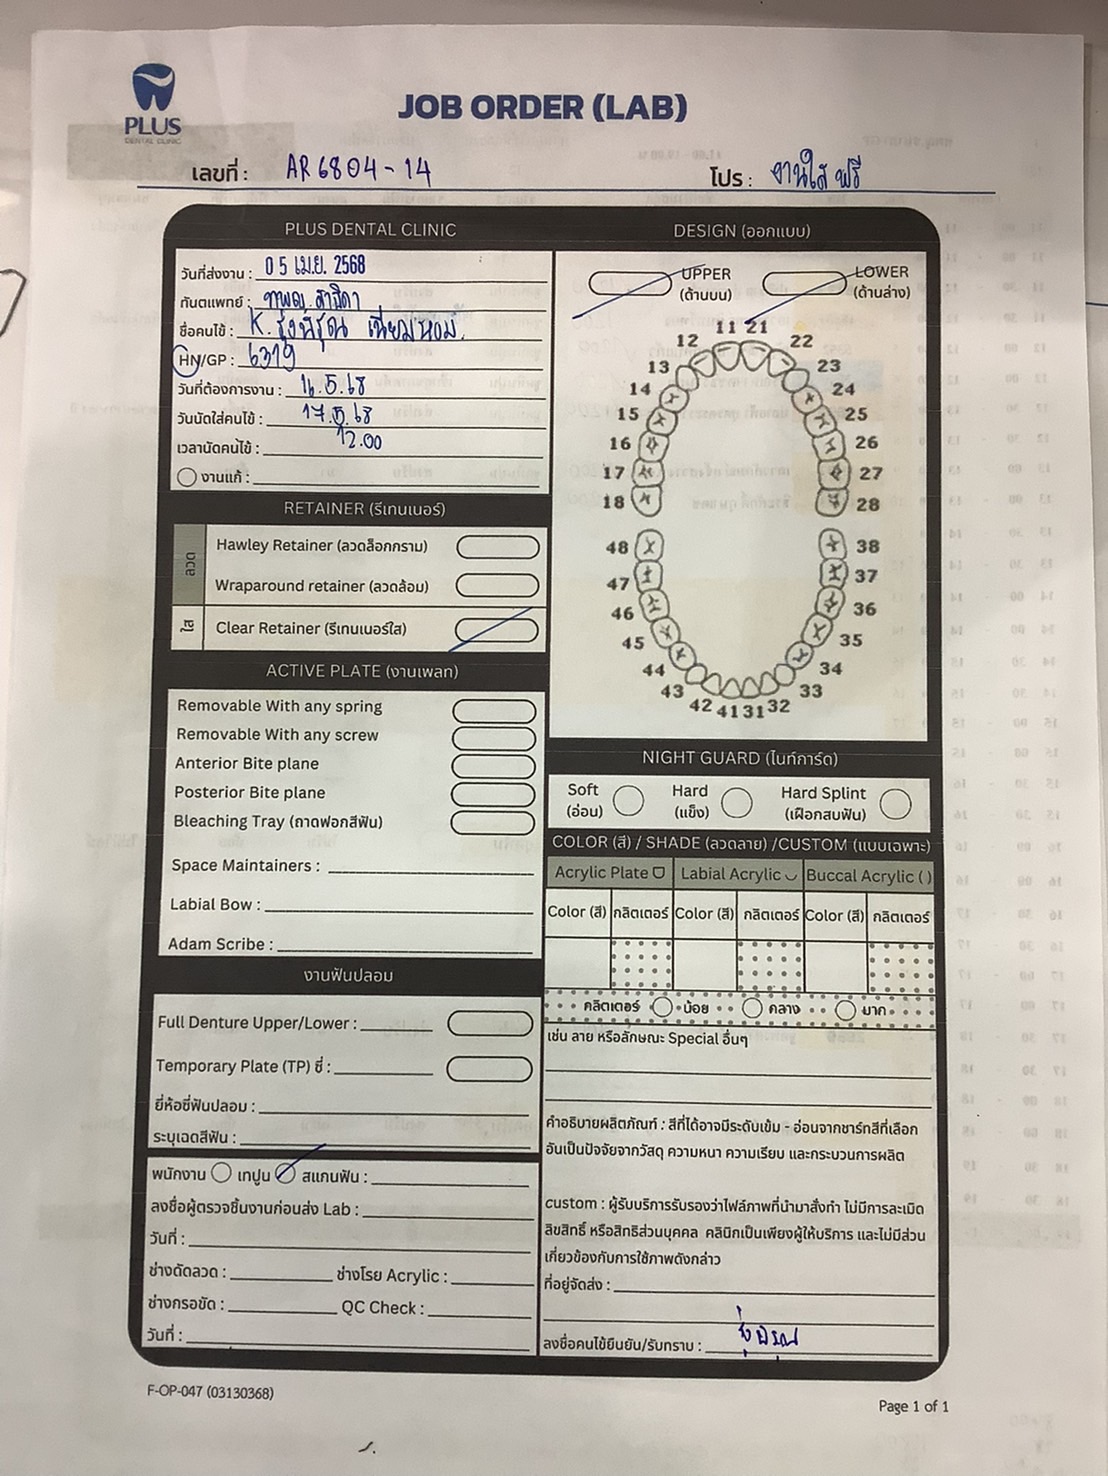 PLUS
DENTAL CLINIC
JOB ORDER (LAB)
เลขที่ : AR6804-14
โปร : งานใส ฟรี
PLUS DENTAL CLINIC
วันที่ส่งงาน : 05 เม.ย. 2568
ทันตแพทย์ : ทพญ.
ชื่อคนไข้ : K.
HN/GP : 6319
วันที่ต้องการงาน : 16.5.68
วันนัดใส่คนไข้ : 17.5.68
เวลานัดคนไข้ : 12.00
งานแก้ :
RETAINER (รีเทนเนอร์)
ลวด
Hawley Retainer (ลวดล็อกกราม)
Wraparound retainer (ลวดล้อม)
ใส
Clear Retainer (รีเทนเนอร์ใส)
ACTIVE PLATE (งานเพลท)
Removable With any spring
Removable With any screw
Anterior Bite plane
Posterior Bite plane
Bleaching Tray (ถาดฟอกสีฟัน)
Space Maintainers :
Labial Bow :
Adam Scribe :
งานฟันปลอม
Full Denture Upper/Lower :
Temporary Plate (TP) ซี่ :
ยี่ห้อซี่ฟันปลอม :
ระบุเฉดสีฟัน :
พนักงาน เทปูน สแกนฟัน :
ลงชื่อผู้ตรวจชิ้นงานก่อนส่ง Lab :
วันที่ :
ช่างดัดลวด : ช่างโรย Acrylic :
ช่างกรอขัด : QC Check :
วันที่ :
DESIGN (ออกแบบ)
UPPER (ด้านบน)
LOWER (ด้านล่าง)
11 21
12 22
13 23
14 24
15 25
16 26
17 27
18 28
48 38
47 37
46 36
45 35
44 34
43 33
42 41 31 32
NIGHT GUARD (ไนท์การ์ด)
Soft (อ่อน)
Hard (แข็ง)
Hard Splint (เฝือกสบฟัน)
COLOR (สี) / SHADE (ลวดลาย) /CUSTOM (แบบเฉพาะ)
Acrylic Plate Labial Acrylic Buccal Acrylic ( )
Color (สี) กลิตเตอร์ Color (สี) กลิตเตอร์ Color (สี) กลิตเตอร์
กลิตเตอร์ น้อย กลาง มาก
เช่น ลาย หรือลักษณะ Special อื่นๆ
คำอธิบายผลิตภัณฑ์ : สีที่ได้อาจมีระดับเข้ม - อ่อนจากชาร์ทสีที่เลือก
อันเป็นปัจจัยจากวัสดุ ความหนา ความเรียบ และกระบวนการผลิต
custom : ผู้รับบริการรับรองว่าไฟล์ภาพที่นำมาสั่งทำ ไม่มีการละเมิด
ลิขสิทธิ์ หรือสิทธิส่วนบุคคล คลินิกเป็นเพียงผู้ให้บริการ และไม่มีส่วน
เกี่ยวข้องกับการใช้ภาพดังกล่าว
ที่อยู่จัดส่ง :
ลงชื่อคนไข้ยืนยัน/รับทราบ :
F-OP-047 (03130368)
Page 1 of 1